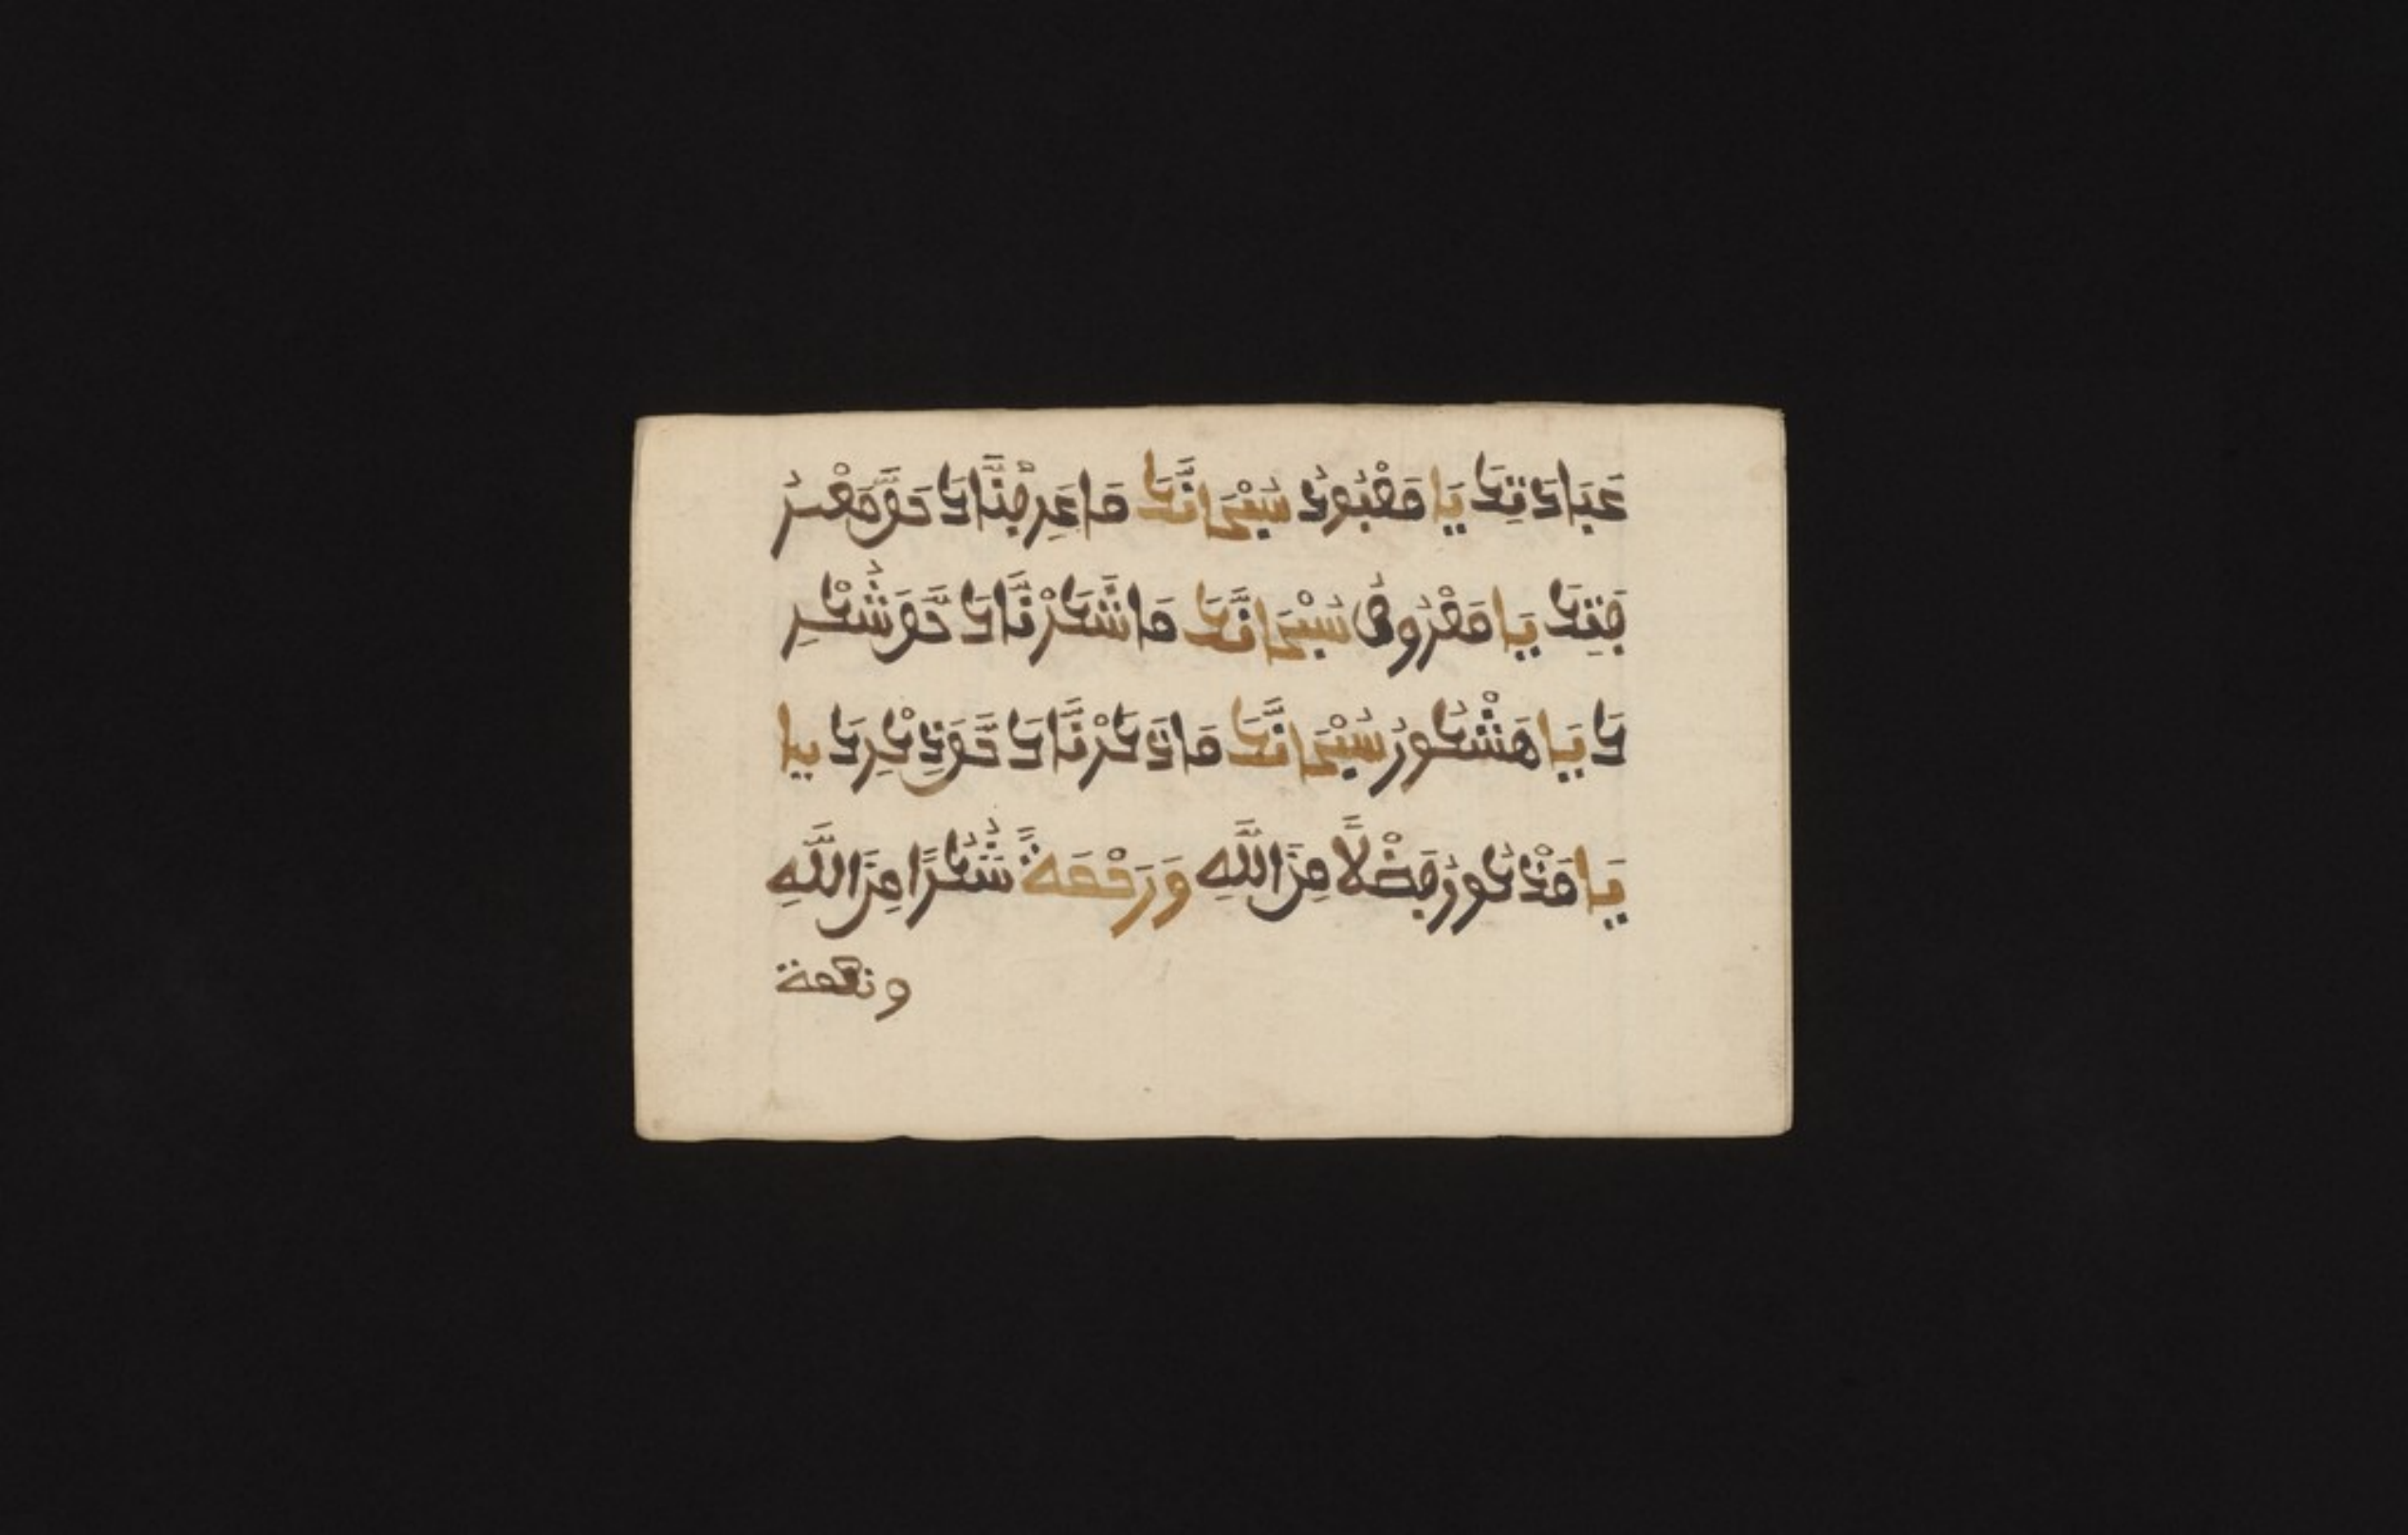 عِبَادَتِكَ يَا مَعْبُودُ سُبْحَانَكَ مَا عَرَفْنَاكَ حَقَّ مَعْرِ
فَتِكَ يَا مَعْرُوفُ سُبْحَانَكَ مَا شَكَرْنَاكَ حَقَّ شُكْرِ
كَ يَا مَشْكُورُ سُبْحَانَكَ مَا ذَكَرْنَاكَ حَقَّ ذِكْرِكَ يا
يَا مَذْكُورُ فَضْلًا مِنَ اللَّهِ وَرَحْمَةً شُكْرًا مِنَ اللَّهِ
ونعمة